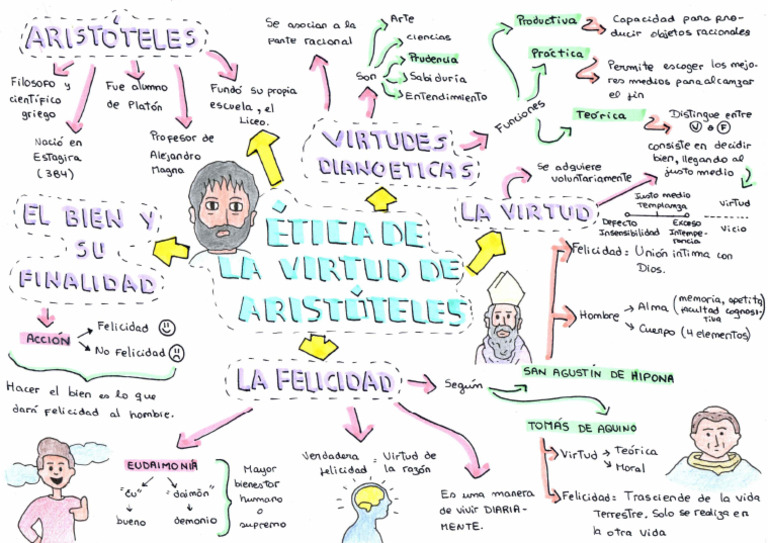 ARISTÓTELES
Filosofo y
científico
griego
Nació en
Estagira
(384)
Fue alumno
de Platón
Profesor de
Alejandro
Magno
Fundó su propia
escuela, el
Liceo.
Se asocian a la
parte racional
VIRTUDES
DIANOETICAS
Son
Arte
ciencias
Prudencia
Sabiduría
Entendimiento
Funciones
Productiva
Capacidad para pro-
ducir objetos racionales
Práctica
Permite escoger los mejo-
res medios para alcanzar
el fin
Teórica
Distingue entre
V o F
LA VIRTUD
Se adquiere
voluntariamente
consiste en decidir
bien, llegando al
justo medio
Justo medio
Templanza
Virtud
Defecto
Insensibilidad
Exceso
Intempe-
rancia
Vicio
EL BIEN Y
SU
FINALIDAD
ACCIÓN
Felicidad
No Felicidad
Hacer el bien es lo que
dará felicidad al hombre.
ÉTICA DE
LA VIRTUD DE
ARISTÓTELES
LA FELICIDAD
Según
SAN AGUSTÍN DE HIPONA
Felicidad = Unión intima con
Dios.
Hombre
Alma (memoria, apetito,
facultad cognosi-
tiva)
Cuerpo (4 elementos)
TOMÁS DE AQUINO
Virtud
Teórica
Moral
Felicidad = Trasciende de la vida
Terrestre. Solo se realiza en
la otra vida
EUDAIMONIA
"Eu"
bueno
"daimōn"
demonio
Mayor
bienestar
humano o
supremo
Verdadera
felicidad = Virtud de
la razón
Es una manera
de vivir DIARIA-
MENTE.